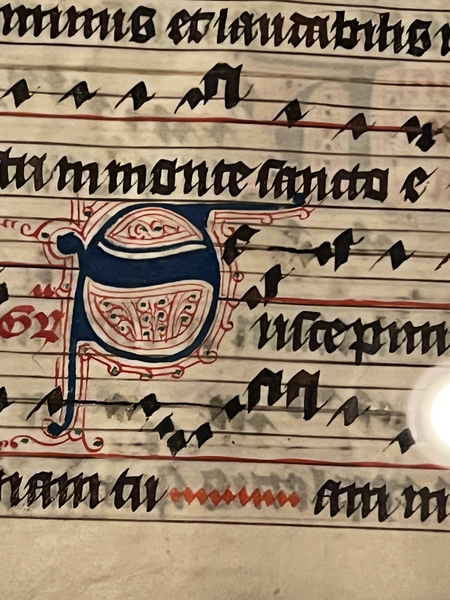 minus et laudabilis n
tu in monte sancto e
Suscepim
diam tu am m